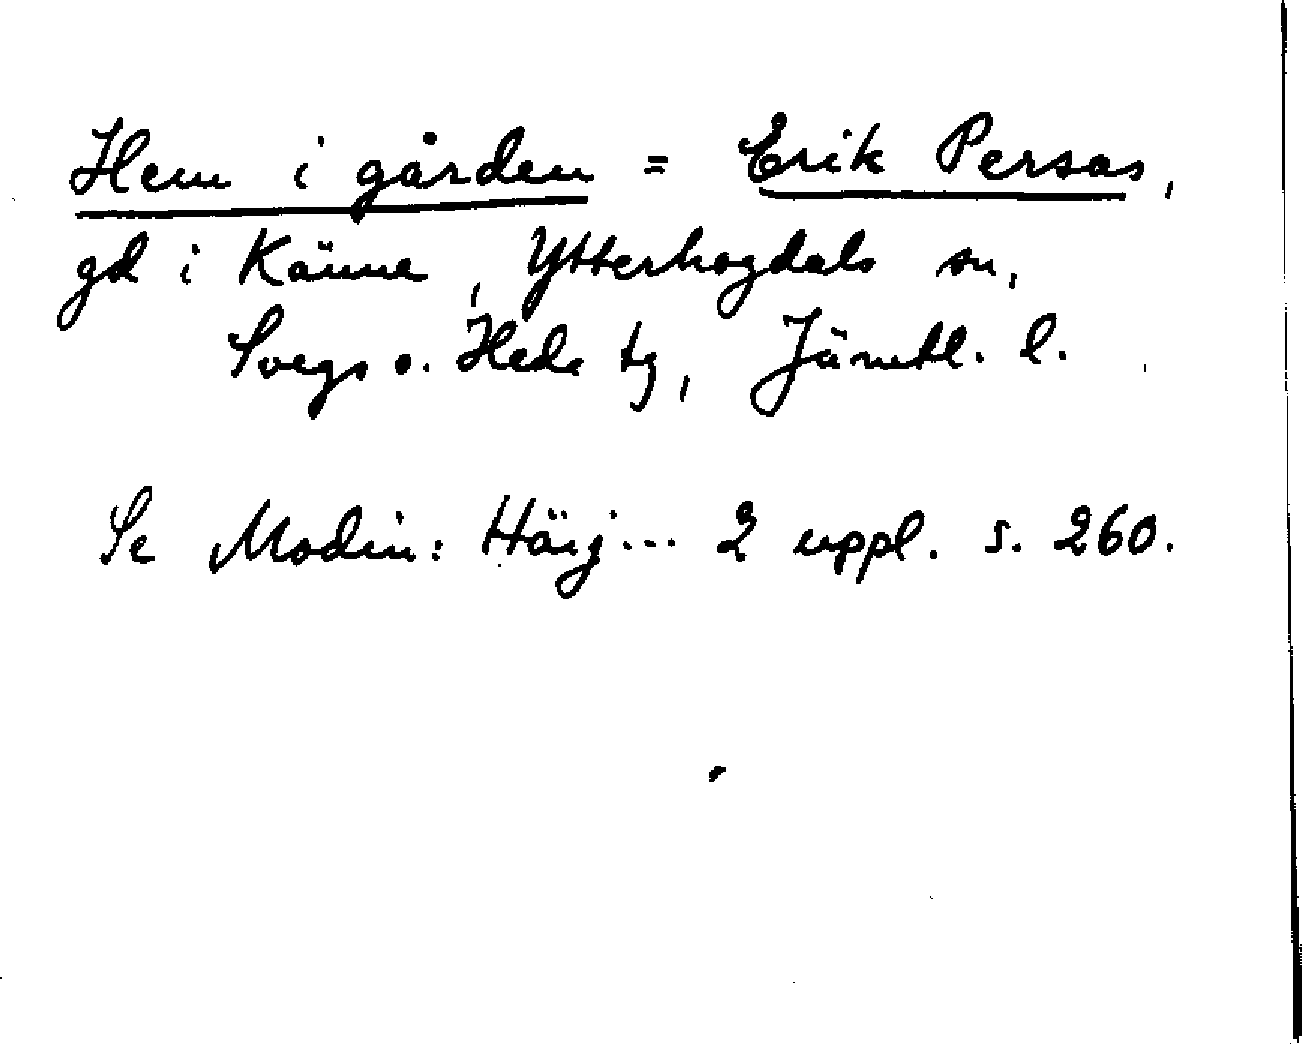 Hem i gården = Erik Persas,
gd i Känne, Ytterhogdals sn,
Svegs o. Heds tg, Jämtl. l.
Se Modin: Härj... 2 uppl. s. 260.